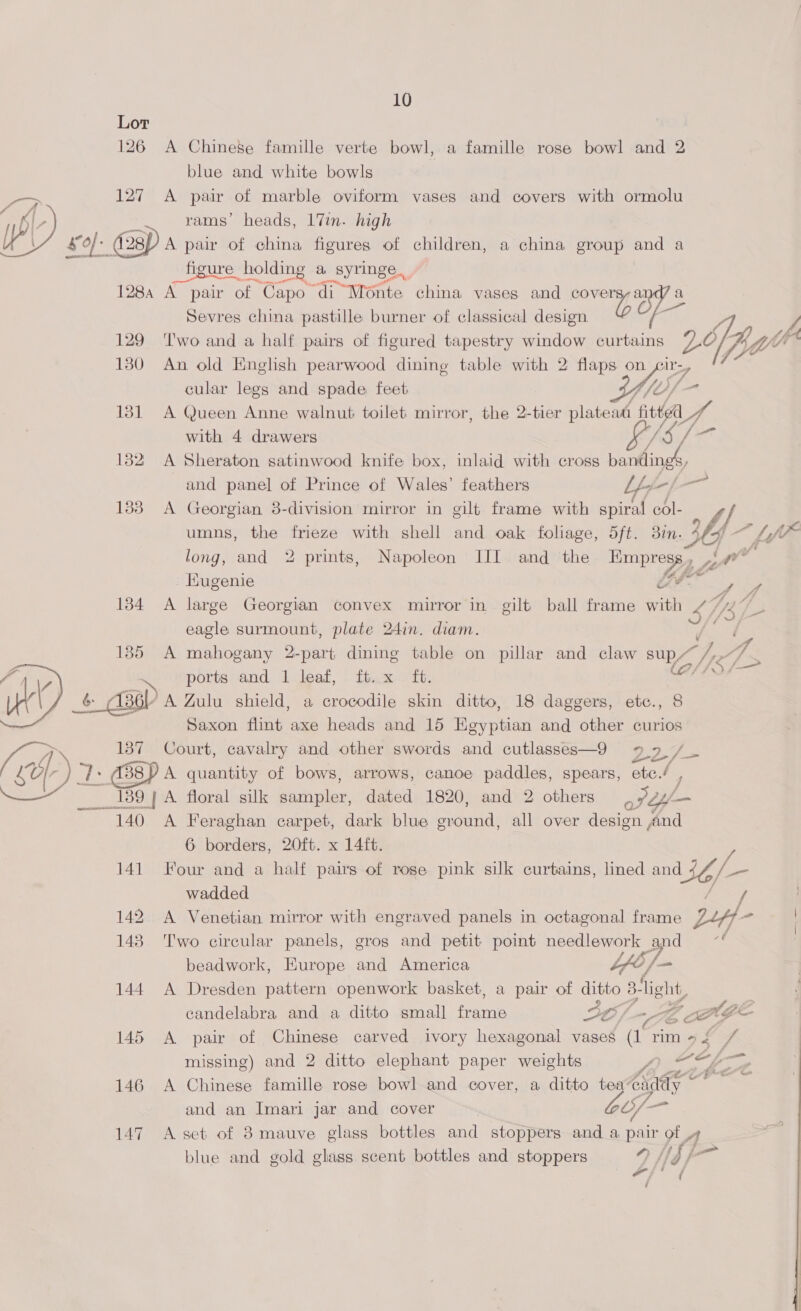 10
Lot
126 A Chinese famille verte bowl, a famille rose bowl and 2
blue and white bowls
127 A pair of marble oviform vases and covers with ormolu
rams' heads, 17in. high
128 A pair of china figures of children, a china group and a
figure holding a syringe
128A A pair of Capo di Monte china vases and covers, and a
Sevres china pastille burner of classical design
129 Two and a half pairs of figured tapestry window curtains
130 An old English pearwood dining table with 2 flaps on cir-
cular legs and spade feet
131 A Queen Anne walnut toilet mirror, the 2-tier plateau fitted
with 4 drawers
132 A Sheraton satinwood knife box, inlaid with cross bandings,
and panel of Prince of Wales' feathers
133 A Georgian 3-division mirror in gilt frame with spiral col-
umns, the frieze with shell and oak foliage, 5ft. 3in.
long, and 2 prints, Napoleon III and the Empress
Eugenie
134 A large Georgian convex mirror in gilt ball frame with
eagle surmount, plate 24in. diam.
135 A mahogany 2-part dining table on pillar and claw sup-
ports and 1 leaf, ft. x ft.
136 A Zulu shield, a crocodile skin ditto, 18 daggers, etc., 8
Saxon flint axe heads and 15 Egyptian and other curios
137 Court, cavalry and other swords and cutlasses—9
138 A quantity of bows, arrows, canoe paddles, spears, etc.
139 A floral silk sampler, dated 1820, and 2 others
140 A Feraghan carpet, dark blue ground, all over design and
6 borders, 20ft. x 14ft.
141 Four and a half pairs of rose pink silk curtains, lined and
wadded
142 A Venetian mirror with engraved panels in octagonal frame
143 Two circular panels, gros and petit point needlework and
beadwork, Europe and America
144 A Dresden pattern openwork basket, a pair of ditto 3-light
candelabra and a ditto small frame
145 A pair of Chinese carved ivory hexagonal vases (1 rim
missing) and 2 ditto elephant paper weights
146 A Chinese famille rose bowl and cover, a ditto tea caddy
and an Imari jar and cover
147 A set of 3 mauve glass bottles and stoppers and a pair of
blue and gold glass scent bottles and stoppers